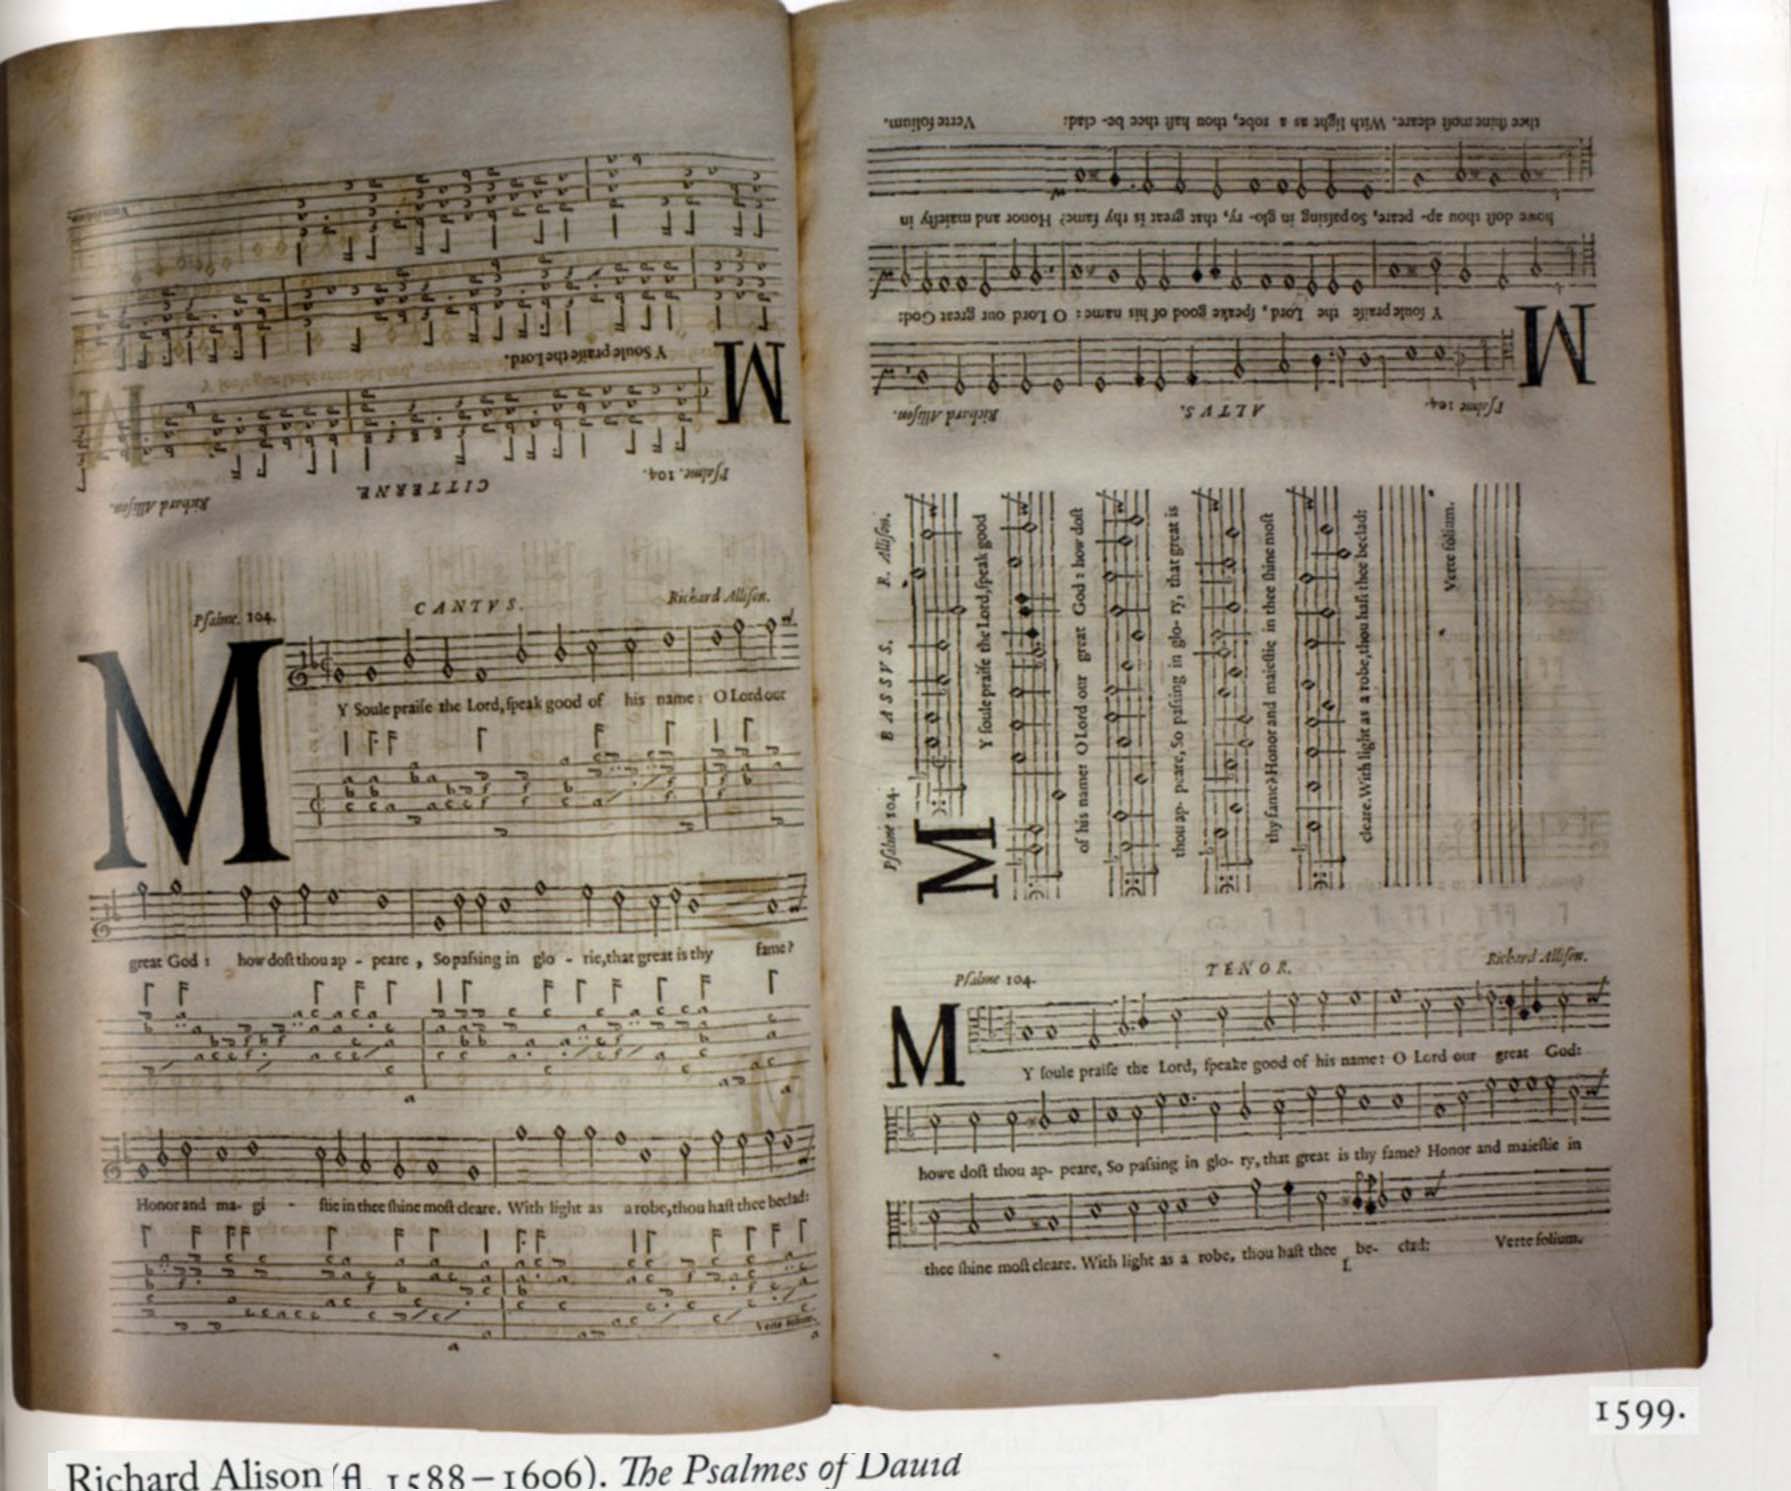 Verte folium.
Y Soule praiſe the Lord.
M
Pſalme. 104.
CITTERNE
Richard Alliſon.
Pſalme. 104.
CANTVS.
Richard Alliſon.
M
Y Soule praiſe the Lord, ſpeak good of his name: O Lord our
great God: how doſt thou ap - peare, So paſsing in glo - rie, that great is thy fame?
Honor and ma- gi - ſtie in thee ſhine moſt cleare. With light as a robe, thou haſt thee beclad:
Verte folium.
Pſalme 104.
ALTVS.
Richard Alliſon.
M
Y ſoule praiſe the Lord, ſpeake good of his name: O Lord our great God:
howe doſt thou ap- peare, So paſsing in glo- ry, that great is thy fame? Honor and maieſty in
thee ſhine moſt cleare. With light as a robe, thou haſt thee be- clad:
Verte folium.
Pſalme 104.
BASSVS.
R. Alliſon.
M
Y ſoule praiſe the Lord, ſpeak good
of his name: O Lord our great God: how doſt
thou ap- peare, So paſing in glo- ry, that great is
thy fame? Honor and maieſtie in thee ſhine moſt
cleare. With light as a robe, thou haſt thee beclad:
Verte folium.
Pſalme 104.
TENOR.
Richard Alliſon.
M
Y ſoule praiſe the Lord, ſpeake good of his name: O Lord our great God:
howe doſt thou ap- peare, So paſsing in glo- ry, that great is thy fame? Honor and maieſtie in
thee ſhine moſt cleare. With light as a robe, thou haſt thee be- clad:
Verte folium.
1599.
Richard Alison (fl. 1588–1606). The Psalmes of Dauid